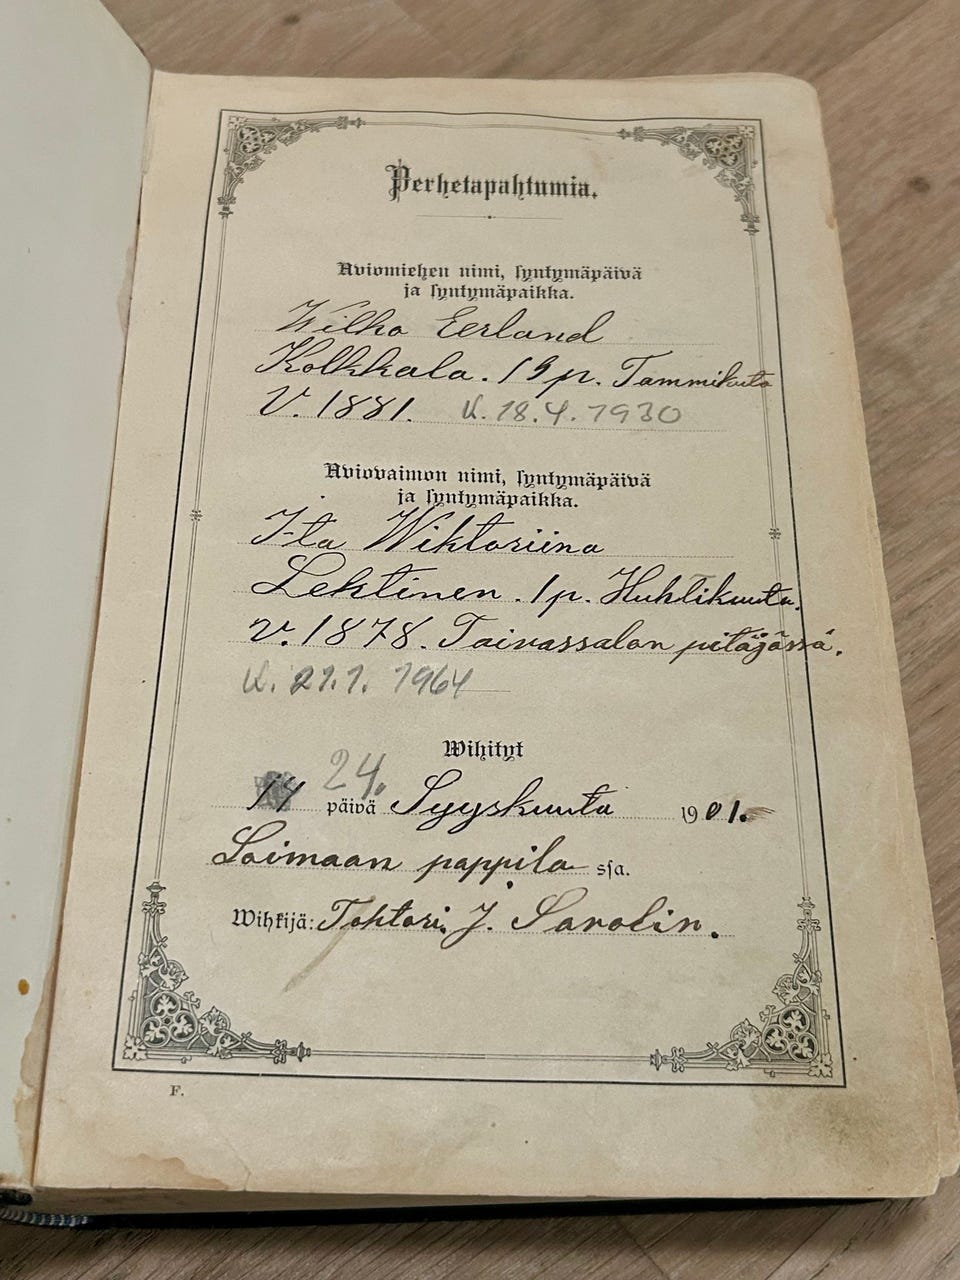 Perhetapahtumia.
Aviomiehen nimi, syntymäpäivä
ja syntymäpaikka.
Wilho Eerland
Kolkkala. 19 p. Tammikuuta
V. 1881. K. 18.4.1930
Aviovaimon nimi, syntymäpäivä
ja syntymäpaikka.
Ita Wiktoriina
Lehtinen. 1 p. Huhtikuuta.
v. 1878. Taivassalon pitäjässä.
K. 21.1. 1964
Wihityt
24.
14 päivä Syyskuuta 1901.
Loimaan pappila ssa.
Wihkijä: Tohtori. J. Sarolin.
F.